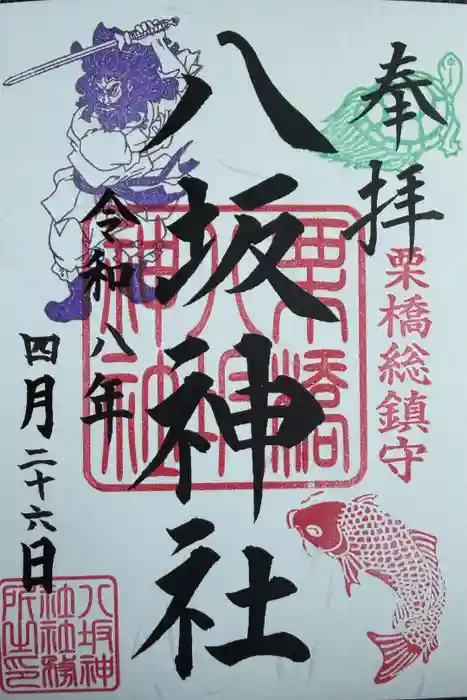 奉拝
栗橋総鎮守
八坂神社
栗橋八坂神社
令和八年
四月二十六日
八坂神
社社務
所之印